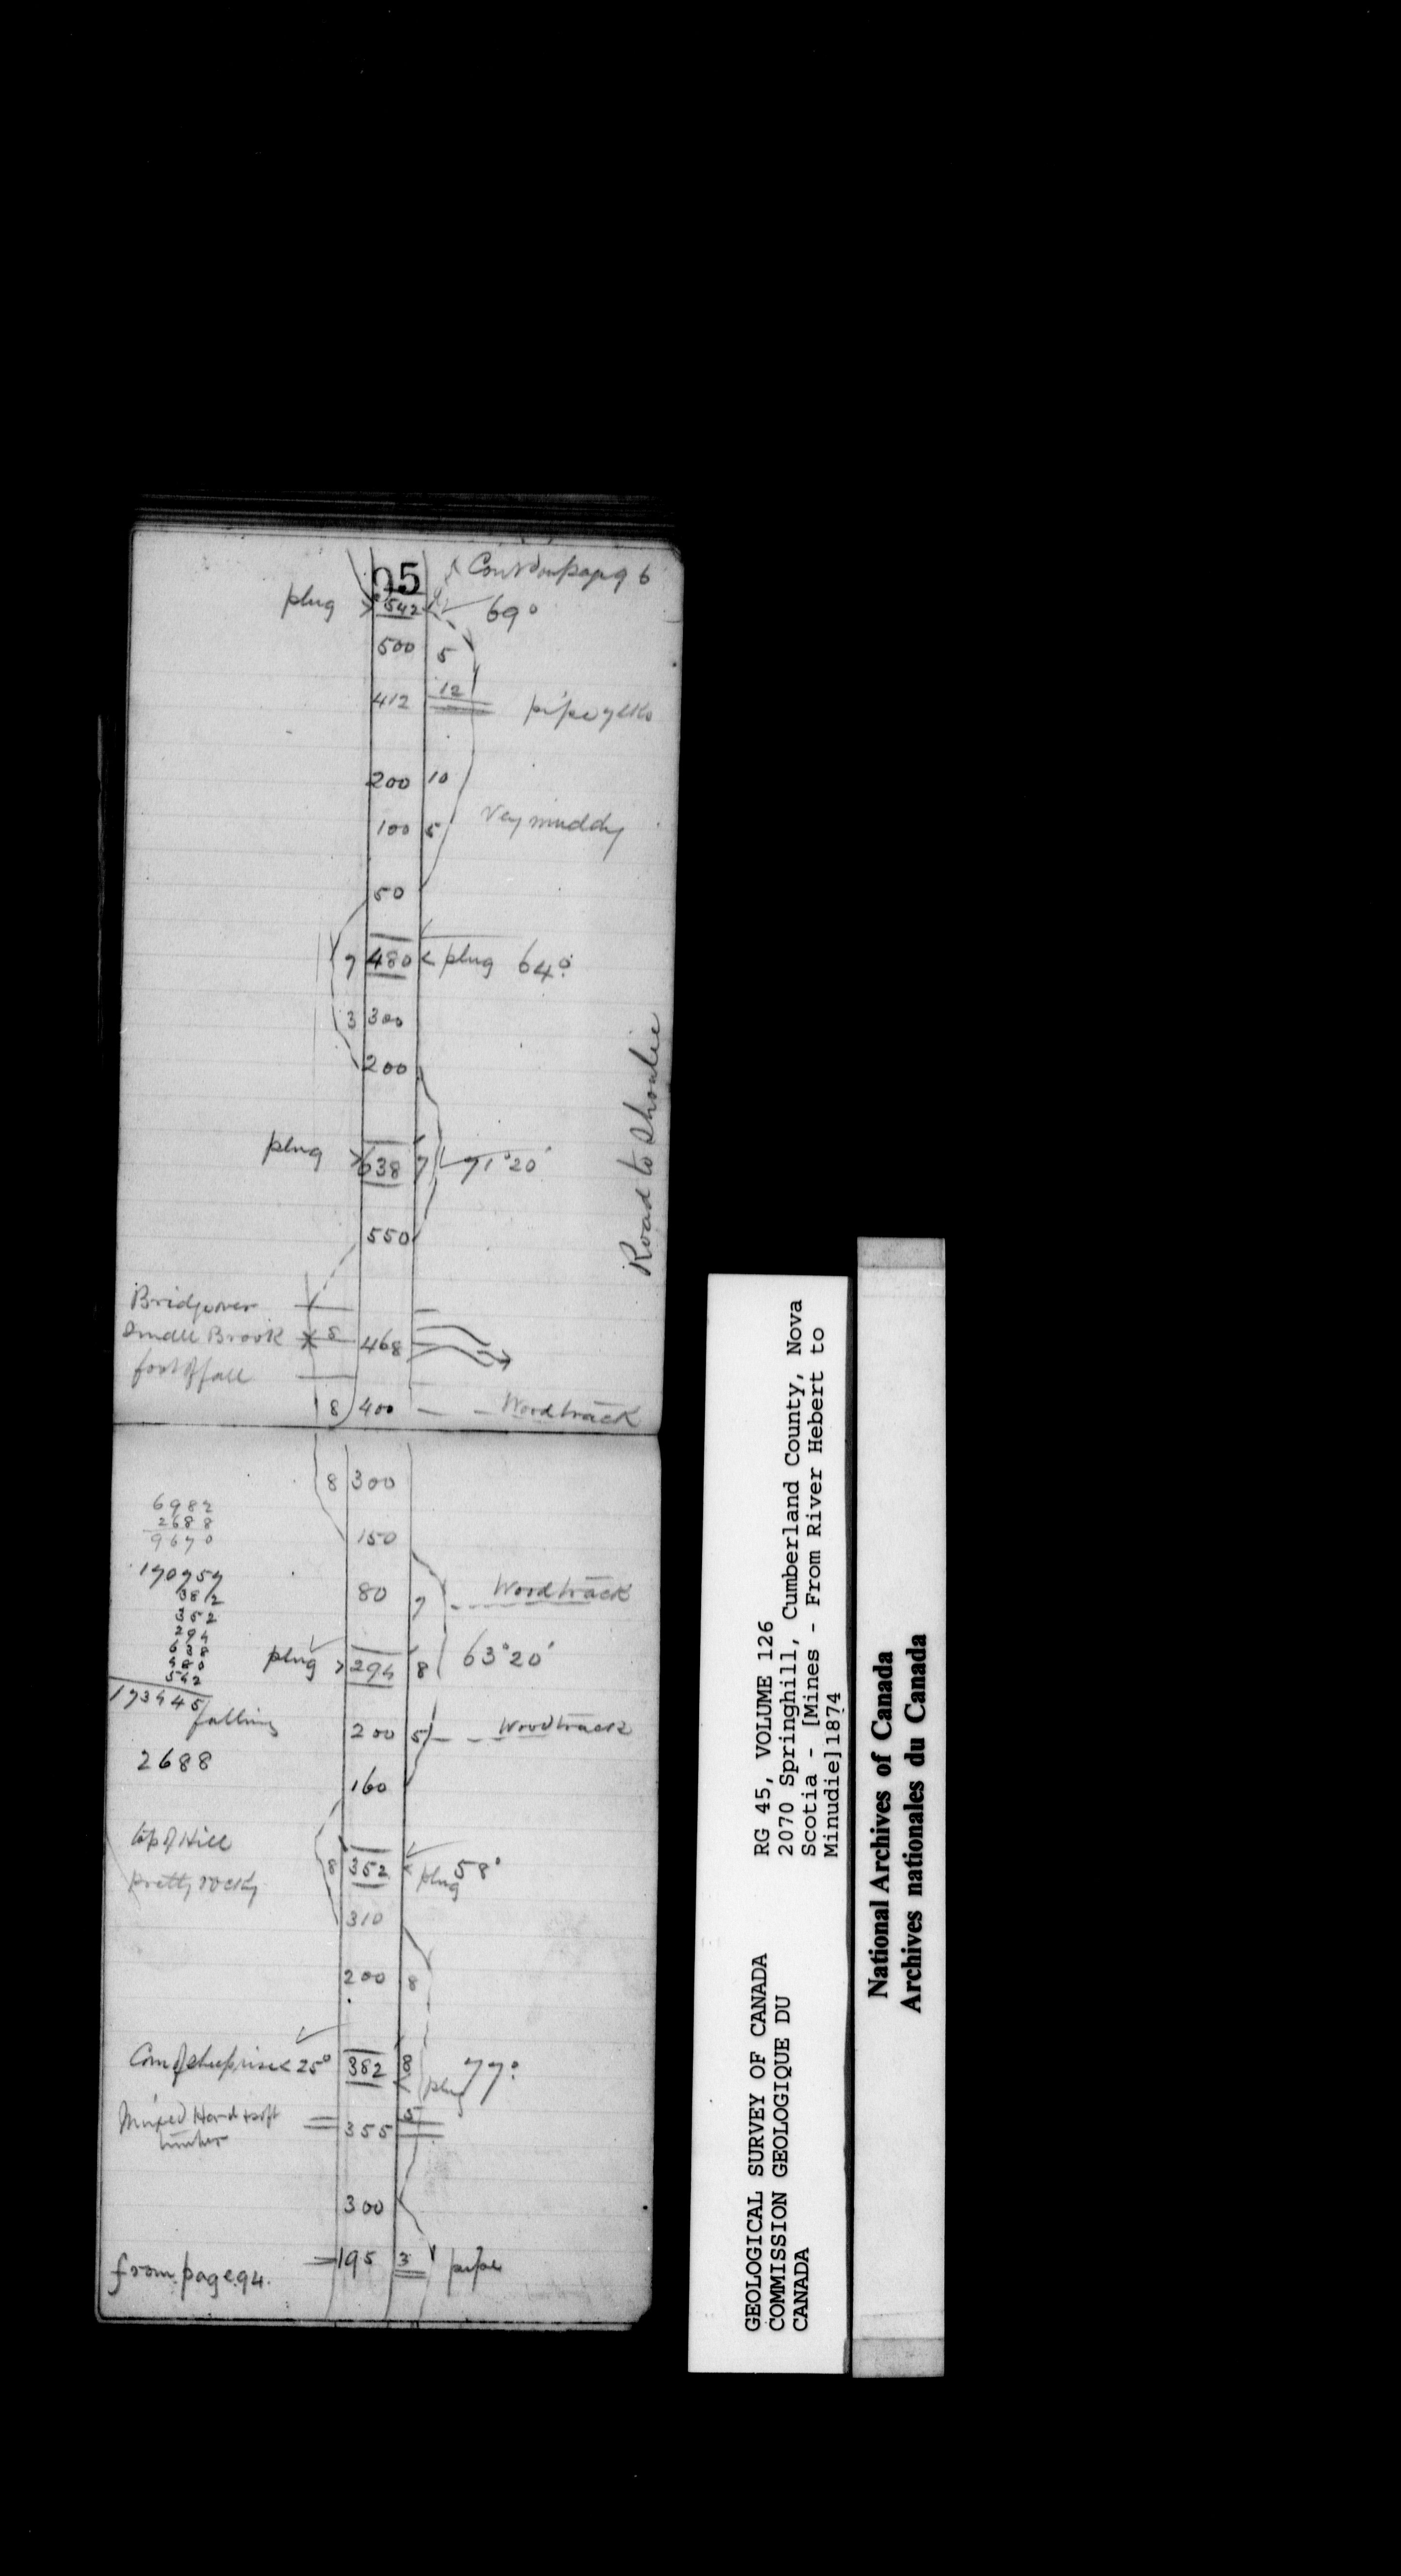 95
plug 542 69°
500 5
412 12 pipe
200 10
100 5 Very muddy
50
7 480 plug 64°
3 300
200
plug 638 7 71°20'
550
Road to Shoulie
Bridge over
Small Brook 8 468
foot of fall
8 400 Woodtrack
8 300
6982
2688
9670
150
170757
382
352
294
638
480
542
173445
80 7 Woodtrack
plug 294 8 63°20'
falling
200 5 Woodtrack
2688
160
top of Hill
8 352 plug 58°
pretty rocky
310
200 8
Com of steep rise < 25° 382 8 plug 77°
Mixed Hard & soft
timber
355 5
300
from page 94. 195 3 pipe
GEOLOGICAL SURVEY OF CANADA
COMMISSION GEOLOGIQUE DU
CANADA
RG 45, VOLUME 126
2070 Springhill, Cumberland County, Nova
Scotia - [Mines - From River Hebert to
Minudie]1874
National Archives of Canada
Archives nationales du Canada